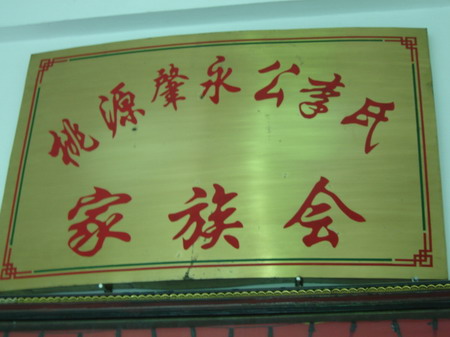 桃源肇永公李氏
家族会